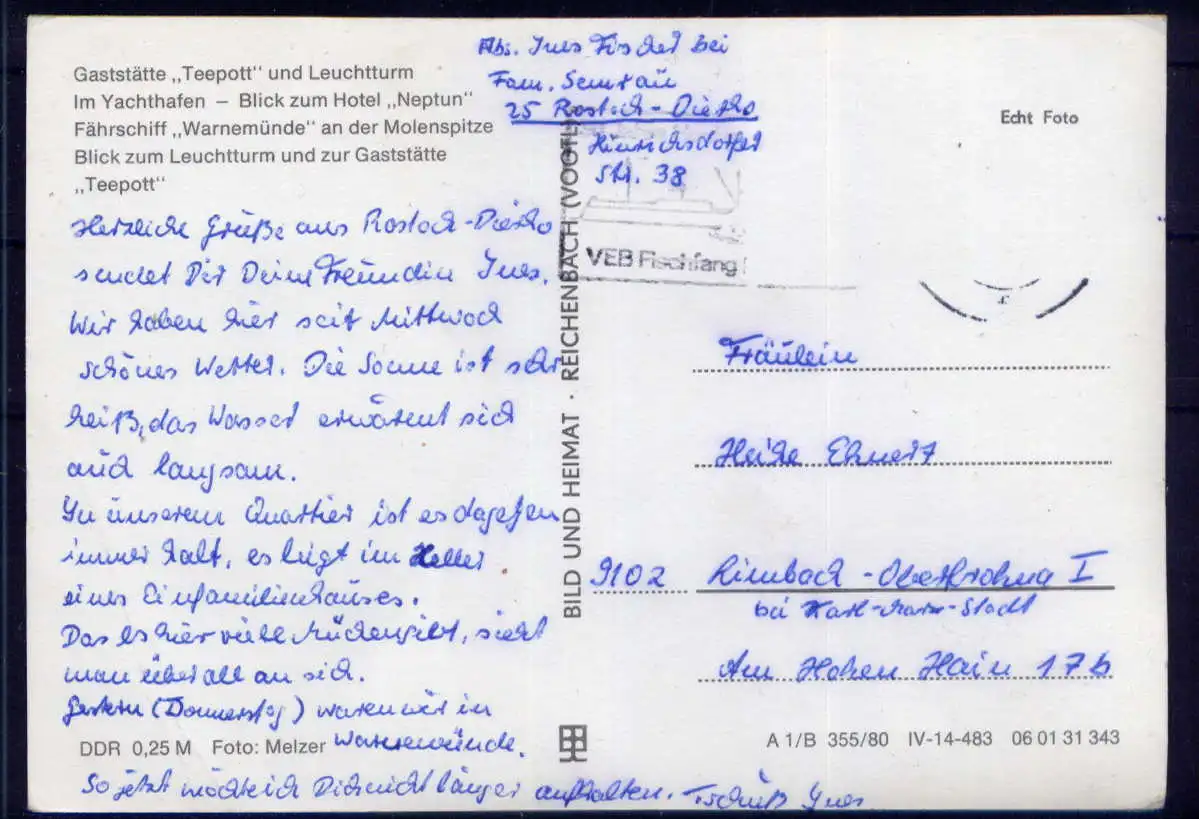 Gaststätte „Teepott" und Leuchtturm
Im Yachthafen – Blick zum Hotel „Neptun"
Fährschiff „Warnemünde" an der Molenspitze
Blick zum Leuchtturm und zur Gaststätte
„Teepott"
Herzliche Grüße aus Rostock-Dierko
sendet Dir Deine Freundin Ines.
Wir haben hier seit Mittwoch
schönes Wetter. Die Sonne ist sehr
heiß, das Wasser erwärmt sich
auch langsam.
In unserem Quartier ist es dagegen
immer kalt, es liegt im Keller
eines Einfamilienhauses.
Das es hier viele Mücken gibt, sieht
man überall an sich.
Gestern (Donnerstag) waren wir in
Warnemünde.
So jetzt möchte ich Dich nicht länger aufhalten. Tschüß Ines
DDR 0,25 M Foto: Melzer
BILD UND HEIMAT · REICHENBACH (VOGTL)
Abs. Ines Fischer bei
Fam. Semrau
25 Rostock-Dierko
Hinrichsdorfer
Str. 38
VEB Fischfang
Echt Foto
Fräulein
Heike Ehnert
9102 Limbach-Oberfrohna I
bei Karl-Marx-Stadt
Am Hohen Hain 17b
A 1/B 355/80 IV-14-483 06 01 31 343